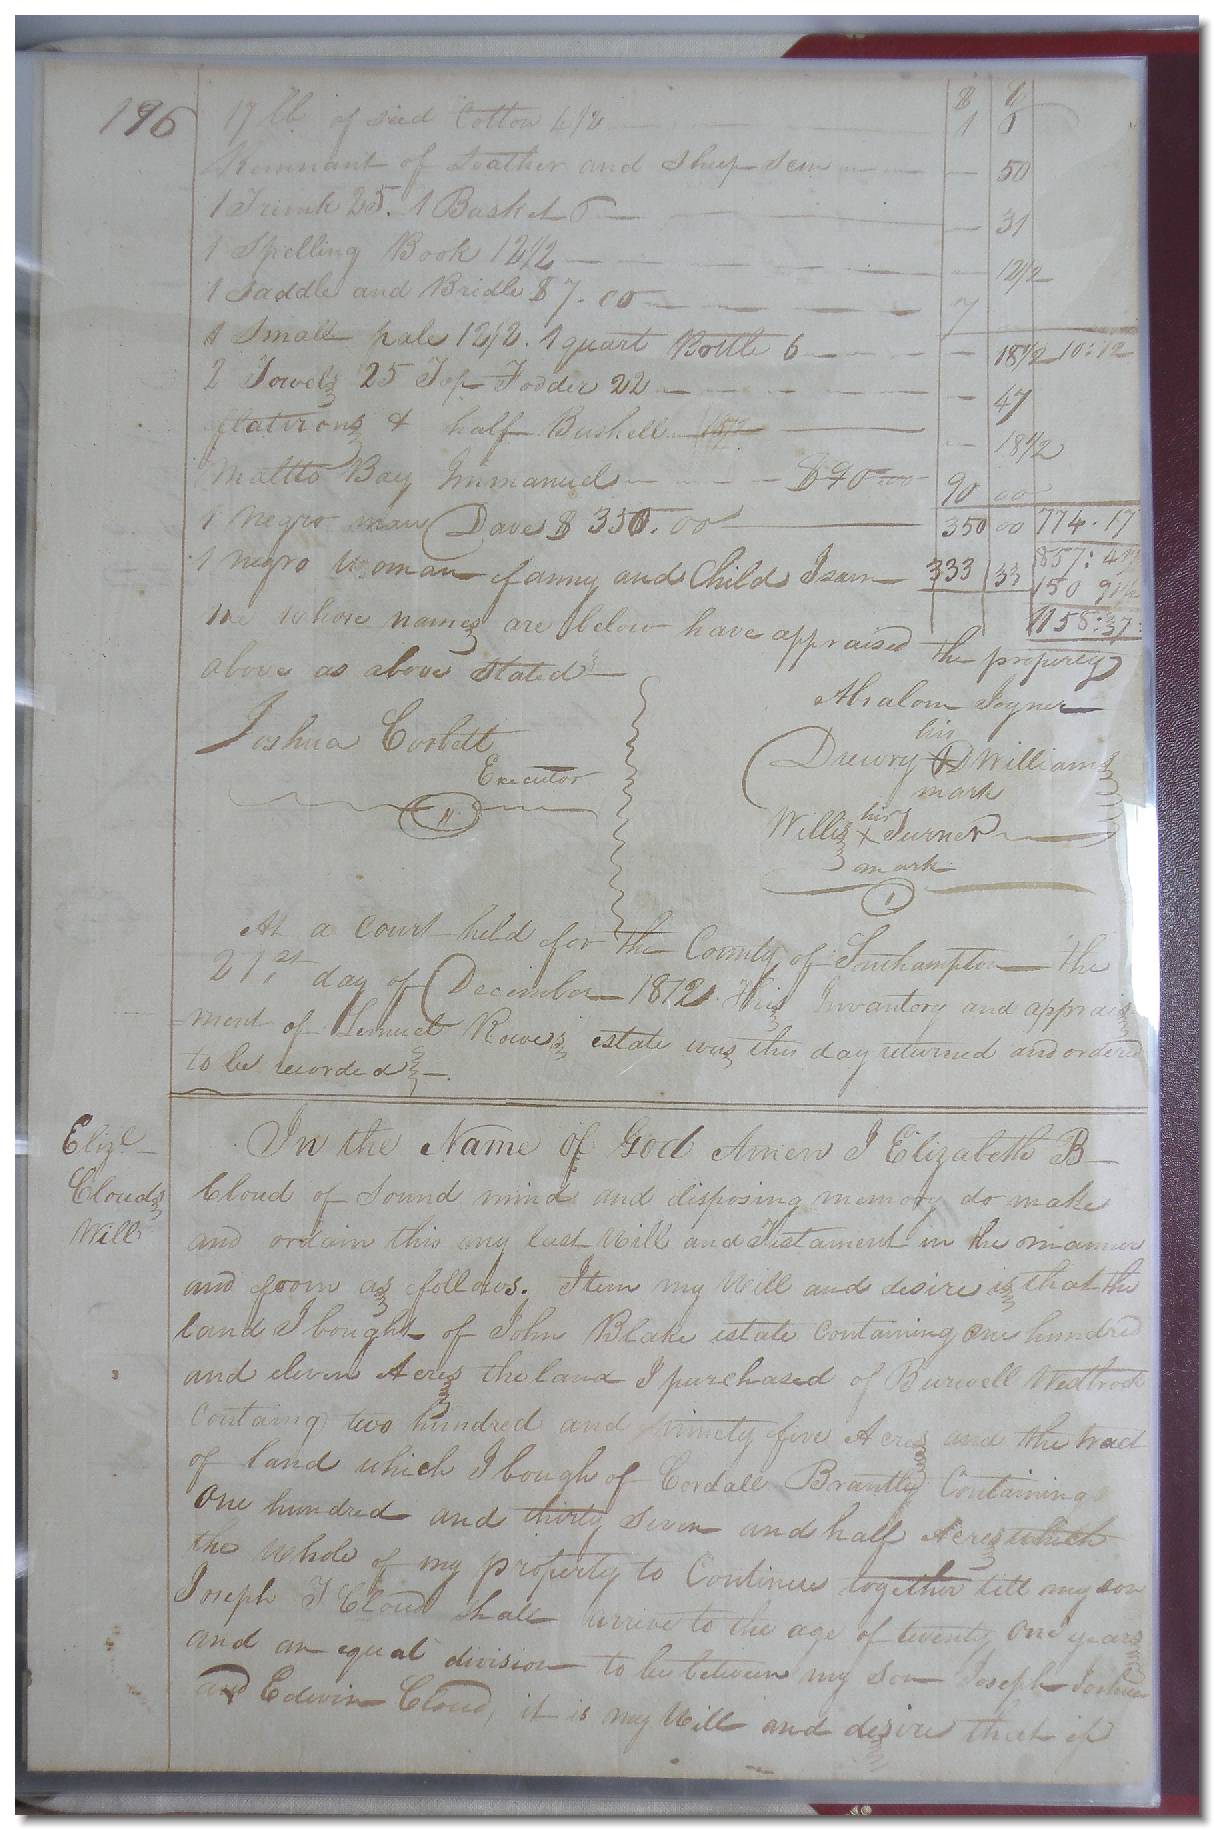 196
17 lb of seed Cotton 6 1/2 1 6
Remnant of Leather and Sheep Scin 50
1 Trunk 25. 1 Basket 6 31
1 Spelling Book 12 1/2 12 1/2
1 Saddle and Bridle $7.00 7
1 Small pale 12 1/2. 1 quart Bottle 6 18 1/2 10:12
2 Towels 25 Top Fodder 22 47
flatirons & half Bushell 18 1/2
Mallto Bay Immanuel $90 00 90 00
1 negro man Dave $ 350.00 350 00 774.17
1 negro Woman fanny and Child Isam 333 33 857:
150
We whose names are below have appraised the property 1158:37
above as above stated
Absalom Joyner
Joshua Corbett
Executor
his
Drewry D Williams
mark
his
Willis X Turner
mark
At a court held for the County of Southampton the
21st day of December 1812. This Inventory and apprais
ment of Lemuel Rowes estate was this day returned and ordered
to be recorded
Eliza
Clouds
Will
In the Name of God Amen I Elizabeth B
Cloud of Sound mind and disposing memory do make
and ordain this my last Will and Testament in the manner
and foom as follows. Item my Will and desire is that the
land I bought of John Blake estate containing One hundred
and eleven Acres the land I purchased of Burwell Westbrook
Containg two hundred and ninety five Acres and the tract
of land which I bough of Cordall Brantly Containing
One hundred and thirty Seven and half Acres which
the Whole of my property to Continue together till my son
Joseph J Cloud Shall arrive to the age of twenty One years
and an equal division to be between my Son Joseph Joshua
and Edwin Cloud, it is my Will and desire that if